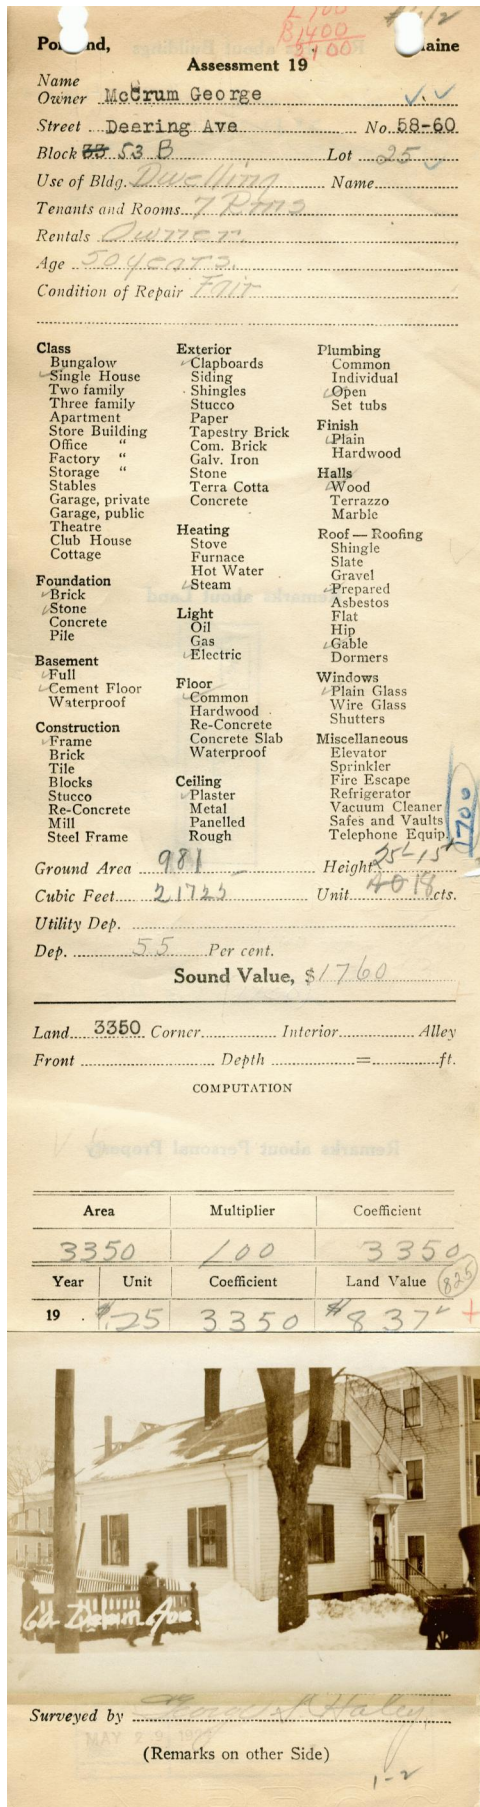 $1400
3100
Assessment 19
Name
Owner McCrum George
Street Deering Ave No. 58-60
Block 33 53 B Lot 25
Use of Bldg. Dwelling Name
Tenants and Rooms 7 Rms
Rentals Owner.
Age 50 years.
Condition of Repair Fair
Class
Bungalow
Single House
Two family
Three family
Apartment
Store Building
Office "
Factory "
Storage "
Stables
Garage, private
Garage, public
Theatre
Club House
Cottage
Foundation
Brick
Stone
Concrete
Pile
Basement
Full
Cement Floor
Waterproof
Construction
Frame
Brick
Tile
Blocks
Stucco
Re-Concrete
Mill
Steel Frame
Exterior
Clapboards
Siding
Shingles
Stucco
Paper
Tapestry Brick
Com. Brick
Galv. Iron
Stone
Terra Cotta
Concrete
Heating
Stove
Furnace
Hot Water
Steam
Light
Oil
Gas
Electric
Floor
Common
Hardwood
Re-Concrete
Concrete Slab
Waterproof
Ceiling
Plaster
Metal
Panelled
Rough
Plumbing
Common
Individual
Open
Set tubs
Finish
Plain
Hardwood
Halls
Wood
Terrazzo
Marble
Roof — Roofing
Shingle
Slate
Gravel
Prepared
Asbestos
Flat
Hip
Gable
Dormers
Windows
Plain Glass
Wire Glass
Shutters
Miscellaneous
Elevator
Sprinkler
Fire Escape
Refrigerator
Vacuum Cleaner
Safes and Vaults
Telephone Equip.
1700
Ground Area 981 Height
Cubic Feet 21725 Unit 18 cts.
Utility Dep.
Dep. 55 Per cent.
Sound Value, $1760
Land 3350 Corner Interior Alley
Front Depth = ft.
COMPUTATION
Area Multiplier Coefficient
3350 100 3350
Year Unit Coefficient Land Value 825
19 $.25 3350 $837
60 Deerin Ave.
Surveyed by George S Haley
(Remarks on other Side)
1-2